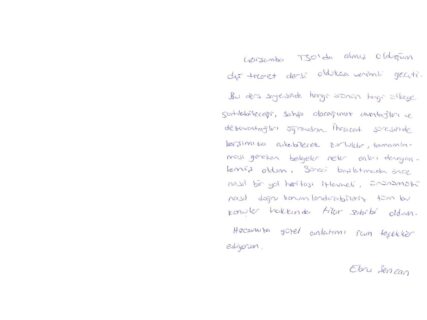 Çarşamba TSO'da almış olduğum
dış ticaret dersi oldukça verimli geçti.
Bu ders sayesinde hangi ürünün hangi ülkeye
satılabileceği, avantajları ve
dezavantajları öğrendim. İhracat sürecinde
karşımıza çıkabilecek zorluklar, tamamlan-
ması gereken belgeler neler onları deneyim-
lemiş oldum. Süreci başlatmadan önce
nasıl bir yol haritası izlemeli, ürünümüzü
nasıl doğru konumlandırabiliriz tüm bu
konular hakkında fikir sahibi oldum.
Hocamıza güzel anlatımı için teşekkür
ediyorum.
Ebru Sencan